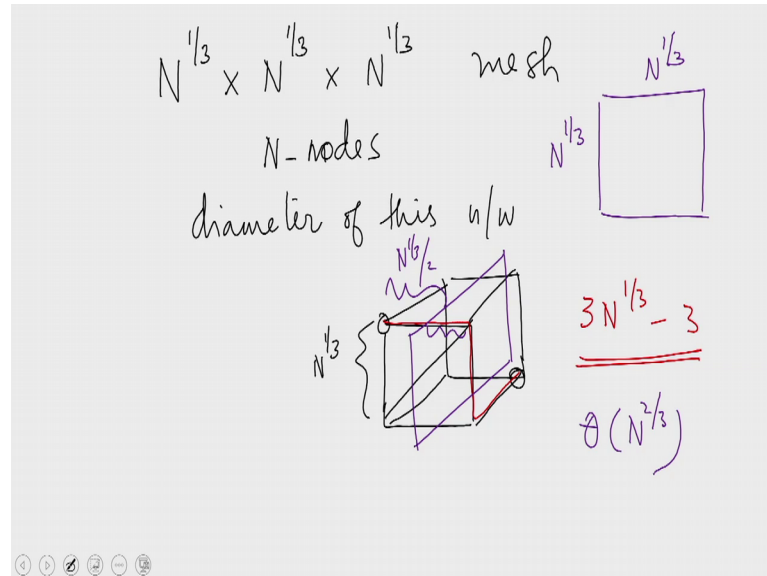 N^{1/3} x N^{1/3} x N^{1/3} mesh
N^{1/3}
N^{1/3}
N-nodes
diameter of this n/w
N^{1/3}/2
N^{1/3}
3N^{1/3} - 3
θ(N^{2/3})